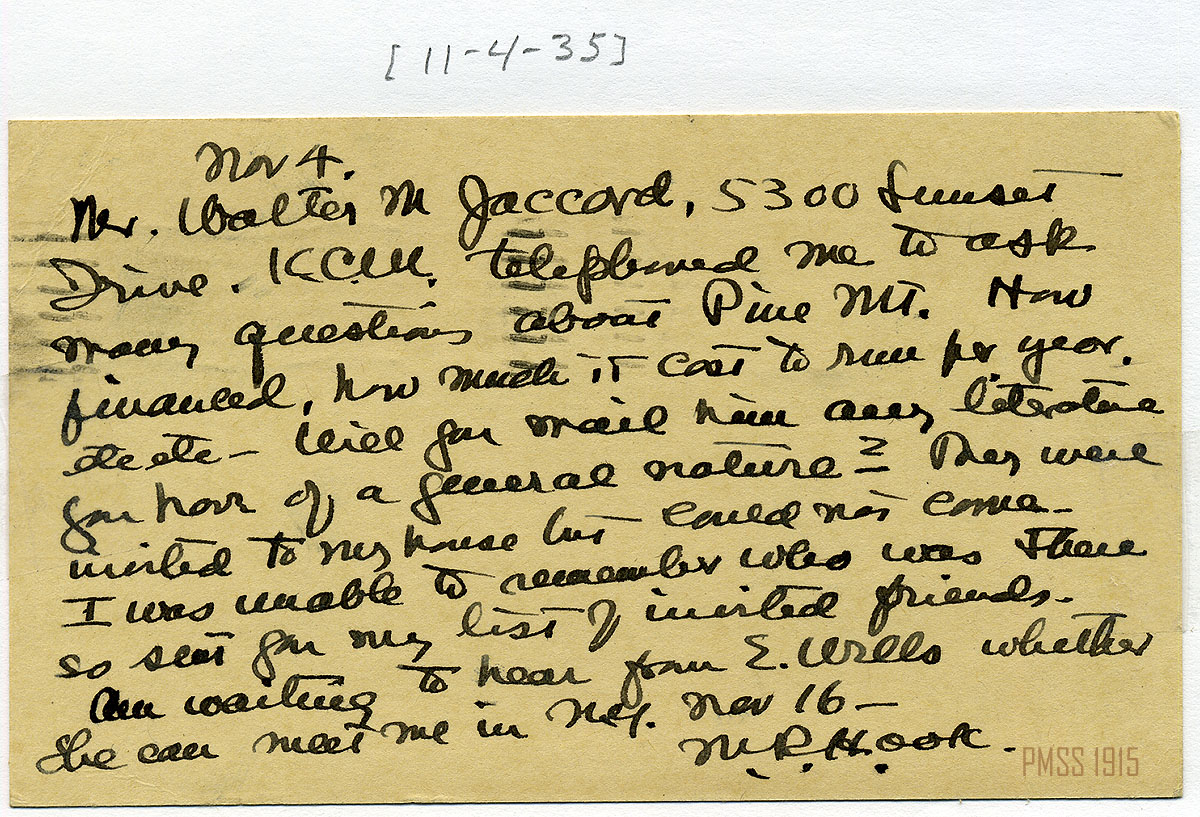 [11-4-35]
Nov 4.
Mr. Walter M Jaccard, 5300 Sunset
Drive. K.C.M. telephoned me to ask
many questions about Pine Mt. How
financed, how much it cost to run per year.
etc etc – Will you mail him any literature
you have of a general nature? They were
invited to my house but could not come –
I was unable to remember who was there
so sent you my list of invited friends.
Am waiting to hear from E. Wells whether
she can meet me in N.Y. Nov 16 –
M.R.H.ook.
PMSS 1915